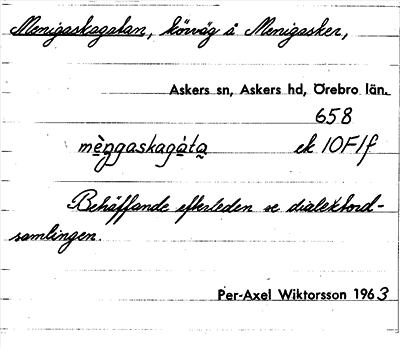 Menigaskagatan, körväg å Menigasker,
Askers sn, Askers hd, Örebro län.
658
mèŋgaskagàta ek 10F1f
Behäffande efterleden se dialektord-
samlingen.
Per-Axel Wiktorsson 1963